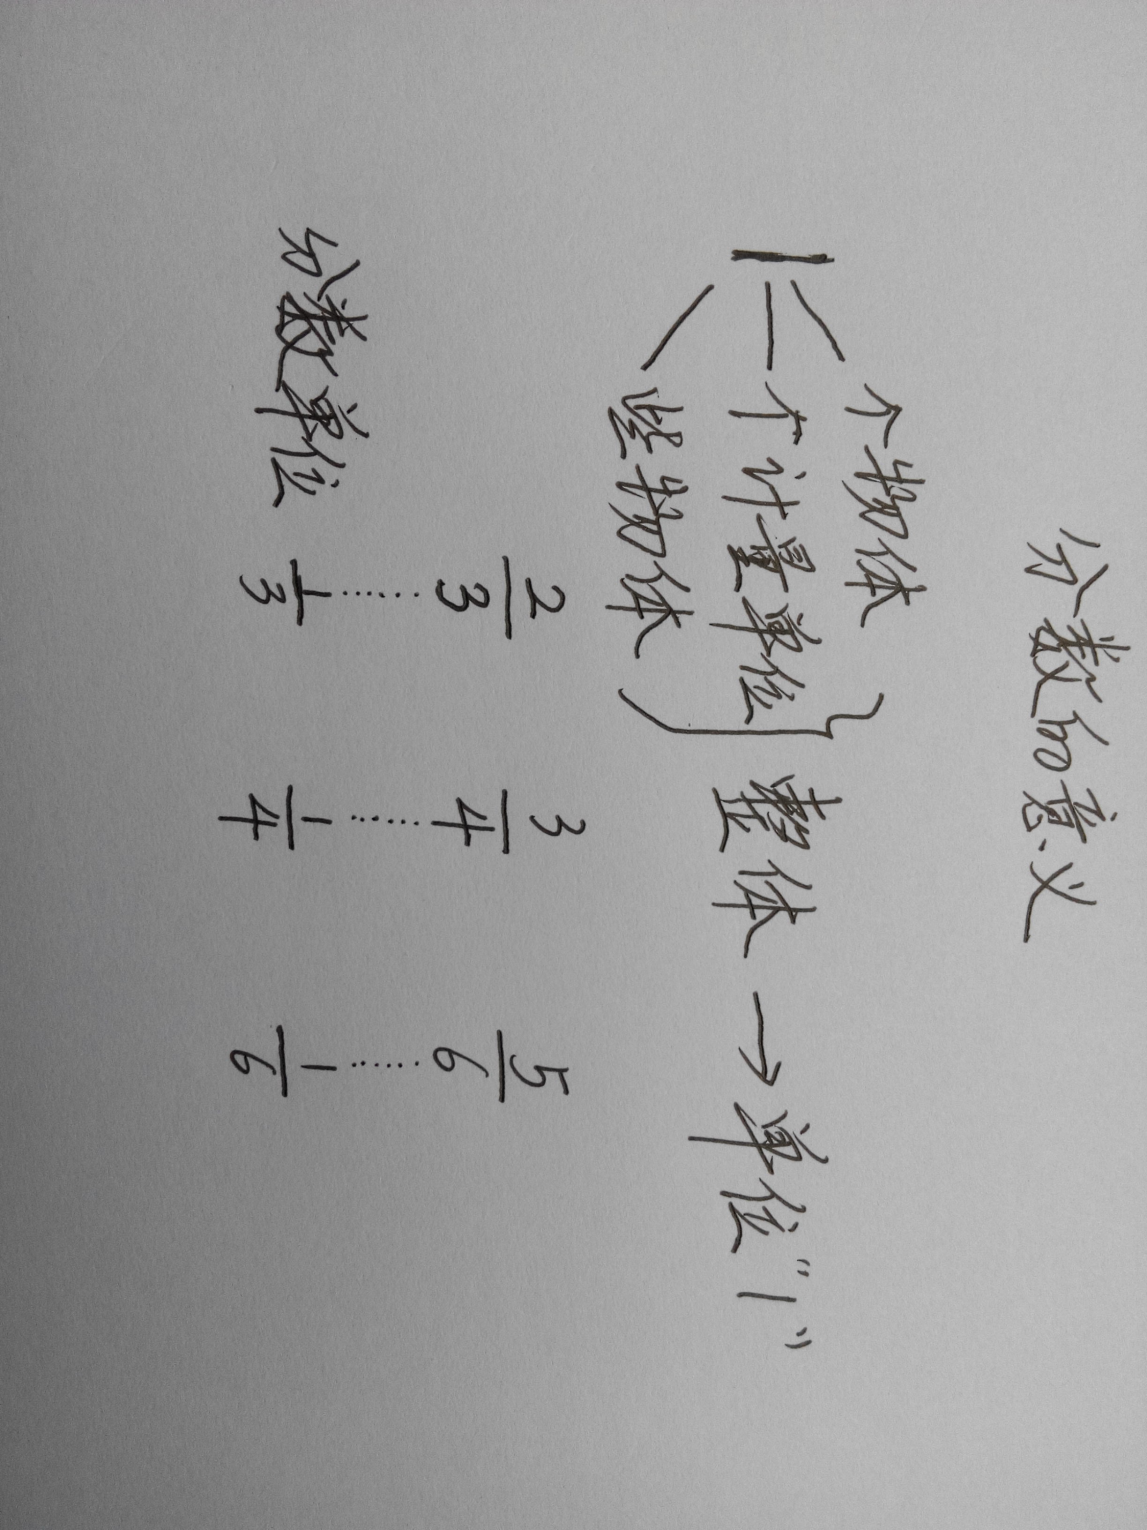 分数的意义
1
个物体
个计量单位
些物体
} 整体 → 单位“1”
2/3 3/4 5/6
⋮ ⋮ ⋮
分数单位 1/3 1/4 1/6